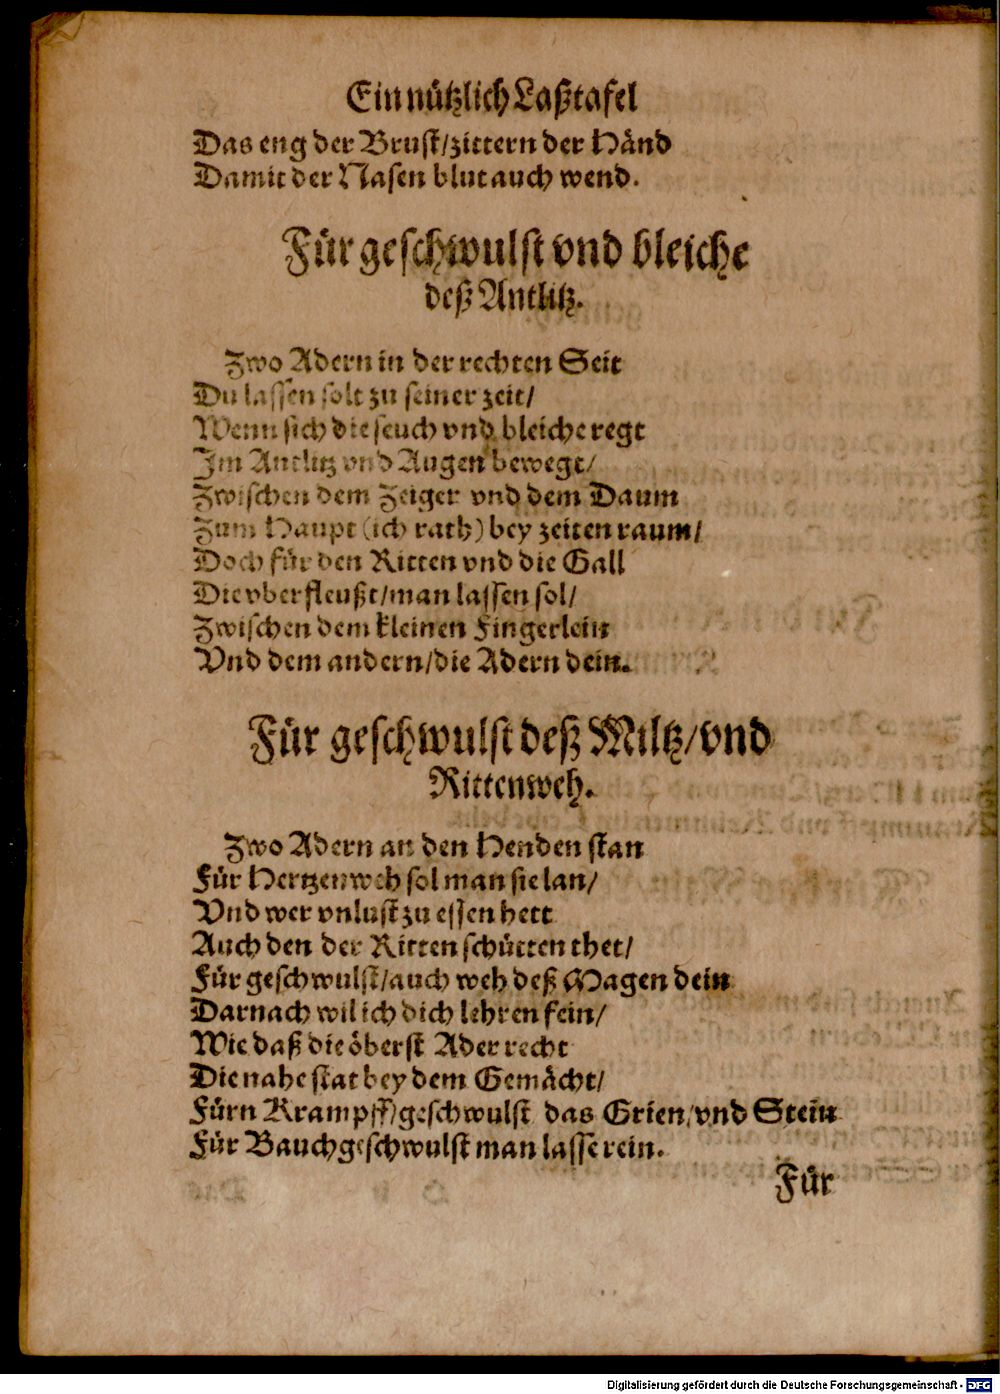 Ein nützlich Laßtafel
Das eng der Brust/zittern der Händ
Damit der Nasen blut auch wend.
Für geschwulst vnd bleiche
deß Antlitz.
Zwo Adern in der rechten Seit
Du lassen solt zu seiner zeit/
Wenn sich die seuch vnd bleiche regt
Im Antlitz vnd Augen bewegt/
Zwischen dem Zeiger vnd dem Daum
Zum Haupt (ich rath) bey zeiten raum/
Doch für den Ritten vnd die Gall
Die vberfleußt/man lassen sol/
Zwischen dem kleinen Fingerlein
Vnd dem andern/die Adern dein.
Für geschwulst deß Miltz/vnd
Rittenweh.
Zwo Adern an den Henden stan
Für Hertzenweh sol man sie lan/
Vnd wer vnlust zu essen hett
Auch den der Ritten schütten thet/
Für geschwulst/auch weh deß Magen dein
Darnach wil ich dich lehren fein/
Wie daß die öberst Ader recht
Die nahe stat bey dem Gemächt/
Fürn Krampff/geschwulst das Grien/vnd Stein
Für Bauchgeschwulst man lasse rein.
Für
Digitalisierung gefördert durch die Deutsche Forschungsgemeinschaft - DFG